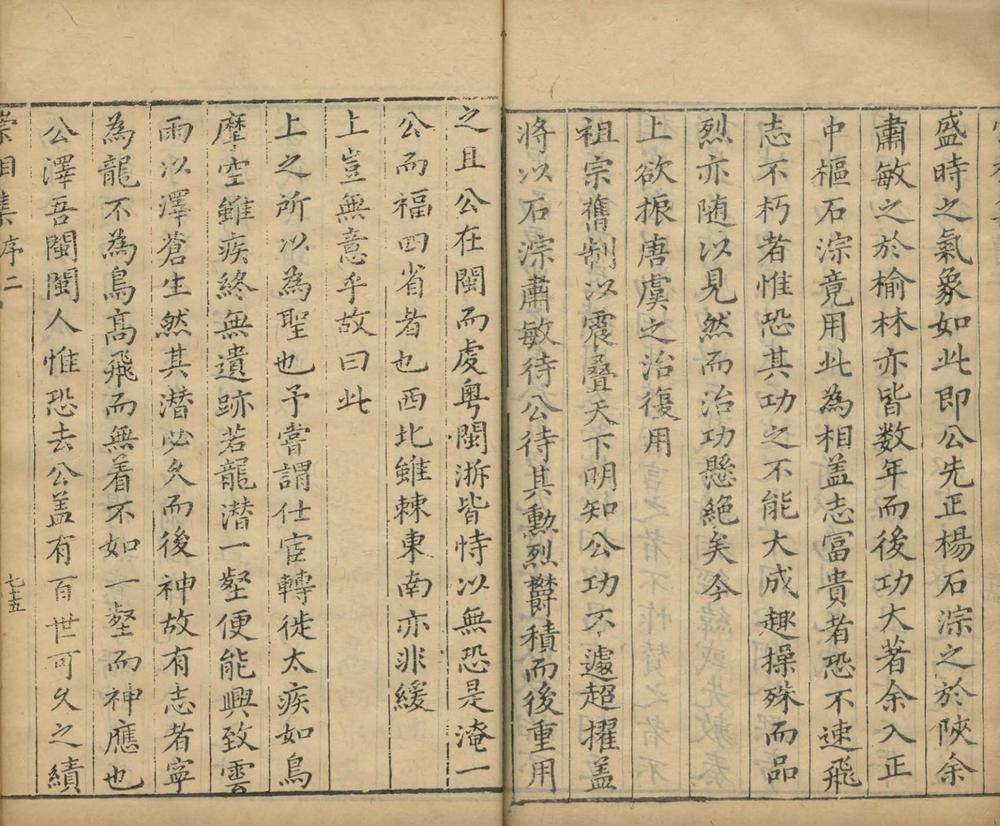 盛時之氣象如此即公先正楊石淙之於陝余
肅敏之於榆林亦皆数年而後功大著余入正
中樞石淙竟用此為相盖志冨貴者恐不速飛
志不朽者惟恐其功之不能大成趣操殊而品
烈亦随以見然而治功懸絶矣今
上欲振唐虞之治復用
祖宗舊制以震疊天下明知公功不遽超擢盖
將以石淙肅敏待公待其勳烈欝積而後重用
之且公在閩而䖏粤閩浙皆恃以無恐是淹一
公而福四省者也西北雖棘東南亦非緩
上豈無意乎故曰此
上之所以為聖也予嘗謂仕宦轉徙太疾如鳥
摩空雖疾終無遺跡若龍潜一壑便能興致雲
雨以澤蒼生然其潜必久而後神故有志者寜
為龍不為鳥髙飛而無着不如一壑而神應也
公澤吾閩閩人惟恐去公盖有百世可久之績
崇相集 序二 七十五